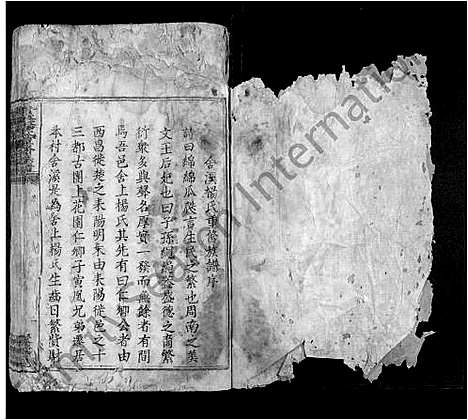 舍溪楊氏重修族譜序
詩曰綿綿瓜瓞言生民之繁也周南之美
文王后妃也曰子孫繩繩盛德之裔繁
衍眾多與聲名厚實一發而無餘者有間
焉吾邑舍上楊氏其先有曰仁卿公者由
西昌徙楚之耒陽明末由耒陽徙邑之十
三都古園上花園仁卿子寅凰兄弟遷居
本村舍溪是為舍上楊氏生齒日繁貲財